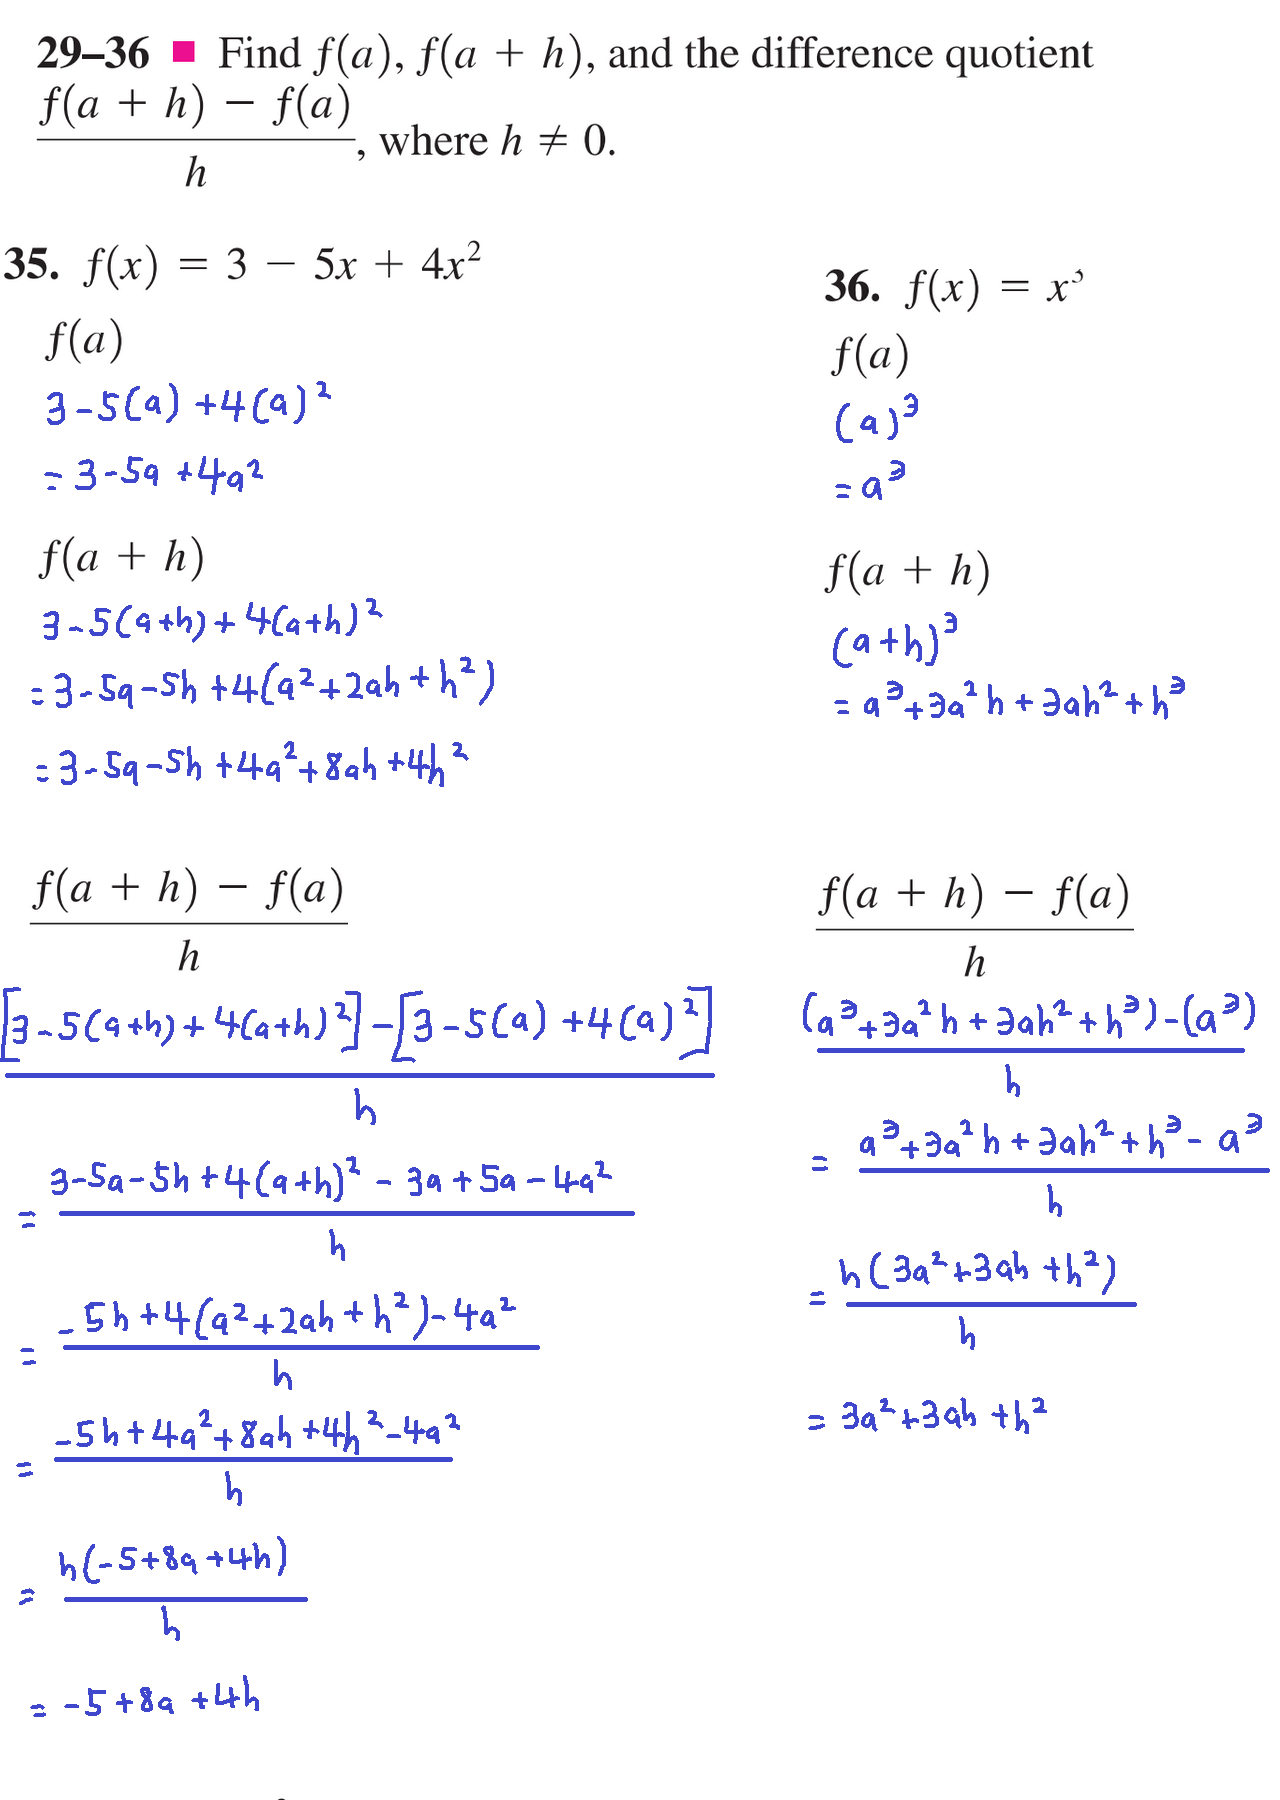 29–36 ■ Find f(a), f(a + h), and the difference quotient
f(a + h) − f(a)
h
, where h ≠ 0.
35. f(x) = 3 − 5x + 4x²
f(a)
3-5(a)+4(a)²
=3-5a+4a²
f(a + h)
3-5(a+h)+4(a+h)²
=3-5a-5h+4(a²+2ah+h²)
=3-5a-5h+4a²+8ah+4h²
f(a + h) − f(a)
h
[3-5(a+h)+4(a+h)²]-[3-5(a)+4(a)²]
h
= 3-5a-5h+4(a+h)²-3a+5a-4a²
h
= -5h+4(a²+2ah+h²)-4a²
h
= -5h+4a²+8ah+4h²-4a²
h
= h(-5+8a+4h)
h
= -5+8a+4h
36. f(x) = x³
f(a)
(a)³
=a³
f(a + h)
(a+h)³
= a³+3a²h+3ah²+h³
f(a + h) − f(a)
h
(a³+3a²h+3ah²+h³)-(a³)
h
= a³+3a²h+3ah²+h³-a³
h
= h(3a²+3ah+h²)
h
= 3a²+3ah+h²